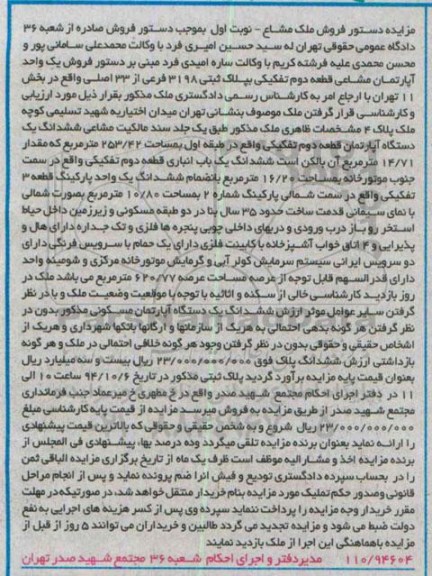 مزایده دستور فروش ملک مشاع - نوبت اول بموجب دستور فروش صادره از شعبه ۳۶
دادگاه عمومی حقوقی تهران له سید حسین امیری فرد با وکالت محمدعلی سامانی پور و
محسن محمدی علیه فرشته کریم با وکالت ساره امیدی فرد مبنی بر دستور فروش یک واحد
آپارتمان مشاعی قطعه دوم تفکیکی بپلاک ثبتی ۳۱۹۸ فرعی از ۳۳ اصلی واقع در بخش
۱۱ تهران با ارجاع امر به کارشناس رسمی دادگستری ملک مذکور بقرار ذیل مورد ارزیابی
و کارشناسی قرار گرفتن ملک موصوف بنشانی تهران میدان اختیاریه شهید تسلیمی کوچه
ملک پلاک ۴ مشخصات ظاهری ملک مذکور طبق یک جلد سند مالکیت مشاعی ششدانگ یک
دستگاه آپارتمان قطعه دوم تفکیکی واقع در طبقه اول بمساحت ۲۵۳/۴۲ مترمربع که مقدار
۱۴/۷۱ مترمربع آن بالکن است ششدانگ یک باب انباری قطعه دوم تفکیکی واقع در سمت
جنوب موتورخانه بمساحت ۱۶/۲۰ مترمربع بانضمام ششدانگ یک واحد پارکینگ قطعه ۳
تفکیکی واقع در سمت شمالی پارکینگ شماره ۲ بمساحت ۱۰/۸۰ مترمربع بصورت شمالی
با نمای سیمانی قدمت ساخت حدود ۳۵ سال بنا در دو طبقه مسکونی و زیرزمین داخل حیاط
استخر رو باز درب ورودی و دربهای داخلی چوبی پنجره ها فلزی و تک جداره دارای هال و
پذیرایی و ۴ اتاق خواب آشپزخانه با کابینت فلزی دارای یک حمام با سرویس فرنگی دارای
دو سرویس ایرانی سیستم سرمایش کولر آبی و گرمایش موتورخانه مرکزی و شومینه واحد
دارای قدرالسهم قابل توجه از عرصه مساحت عرصه ۶۴۰/۷۷ مترمربع می باشد ملک در
روز بازدید کارشناسی خالی از سکنه و اثاثیه با توجه با موقعیت وضعیت ملک و با در نظر
گرفتن سایر عوامل موثر ارزش ششدانگ یک دستگاه آپارتمان مسکونی مذکور بدون در
نظر گرفتن هر گونه بدهی احتمالی به هریک از سازمانها و ارگانها بانکها شهرداری و هریک از
اشخاص حقیقی و حقوقی بدون در نظر گرفتن وجود هر گونه خلافی احتمالی در ملک و هر گونه
بازداشتی ارزش ششدانگ پلاک فوق ۲۳/۰۰۰/۰۰۰/۰۰۰ ریال بیست و سه میلیارد ریال
بعنوان قیمت پایه مزایده برآورد گردید پلاک ثبتی مذکور در تاریخ ۹۴/۱۰/۶ ساعت ۱۰ الی
۱۱ در دفتر اجرای احکام مجتمع شهید صدر واقع در خ مطهری خ میرعماد جنب فرمانداری
مجتمع شهید صدر از طریق مزایده به فروش میرسد مزایده از قیمت پایه کارشناسی مبلغ
۲۳/۰۰۰/۰۰۰/۰۰۰ ریال شروع و به شخص حقیقی و حقوقی که بالاترین قیمت پیشنهادی
را ارائه نماید بعنوان برنده مزایده تلقی میگردد وده درصد بها، پیشنهادی فی المجلس از
برنده مزایده اخذ و مشارالیه موظف است ظرف یک ماه از تاریخ برگزاری مزایده الباقی ثمن
را در بحساب سپرده دادگستری تودیع و فیش انرا ضم پرونده نماید و پس از انجام مراحل
قانونی وصدور حکم تملیک مورد مزایده بنام خریدار منتقل خواهد شد، در صورتیکه در مهلت
مقرر خریدار وجه مزایده را پرداخت ننماید سپرده وی پس از کسر هزینه های اجرایی به نفع
دولت ضبط می شود و مزایده تجدید می گردد طالبین و خریداران می توانند ۵ روز از قبل از
مزایده باهماهنگی این اجرا از ملک بازدید نمایند
۱۱۰/۹۴۶۰۴ مدیر دفتر و اجرای احکام شعبه ۳۶ مجتمع شهید صدر تهران